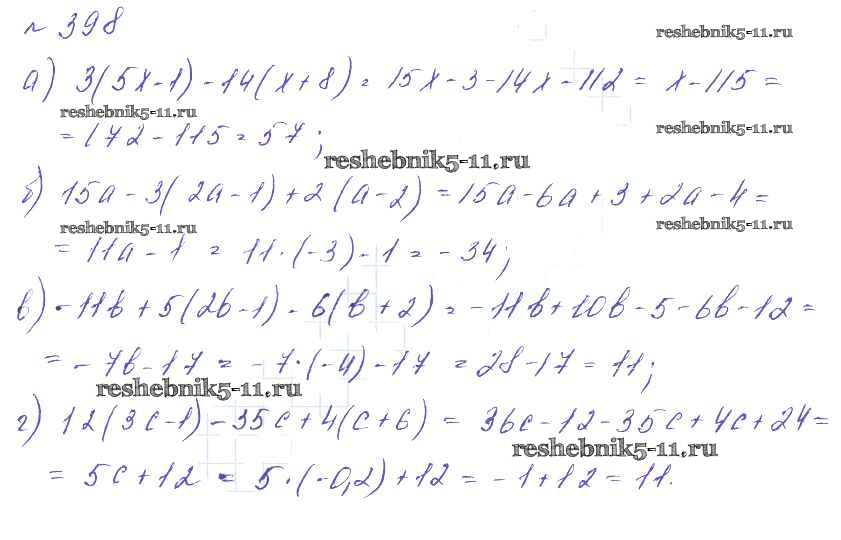 № 398
reshebnik5-11.ru
а) 3(5x-1)-14(x+8) = 15x-3-14x-112 = x-115 =
reshebnik5-11.ru
= 172-115 = 57;
reshebnik5-11.ru
reshebnik5-11.ru
б) 15a-3(2a-1)+2(a-2) = 15a-6a+3+2a-4 =
reshebnik5-11.ru
reshebnik5-11.ru
= 11a-1 = 11·(-3)-1 = -34;
в) -11b+5(2b-1)-6(b+2) = -11b+10b-5-6b-12 =
= -7b-17 = -7·(-4)-17 = 28-17 = 11;
reshebnik5-11.ru
г) 12(3c-1)-35c+4(c+6) = 36c-12-35c+4c+24 =
reshebnik5-11.ru
= 5c+12 = 5·(-0,2)+12 = -1+12 = 11.